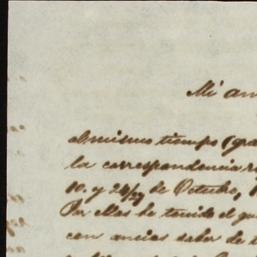 Mi am
al mismo tiempo (gra
la correspondencia r
10. y 24/27 de Octubre,
Por ellas he tenido el gu
con ancias saber de